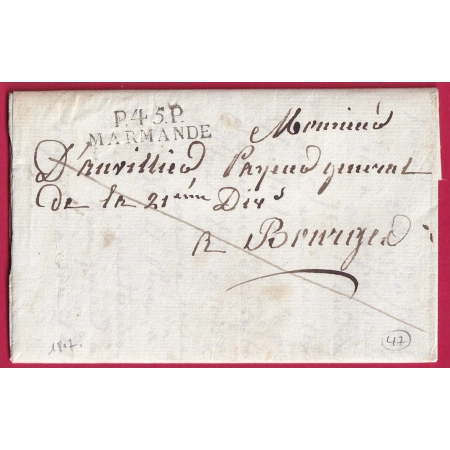 P.45.P.
MARMANDE
Monsieur
D'anvillier Payeur general
De la 21ème Divn
A Bourges
1807.
47